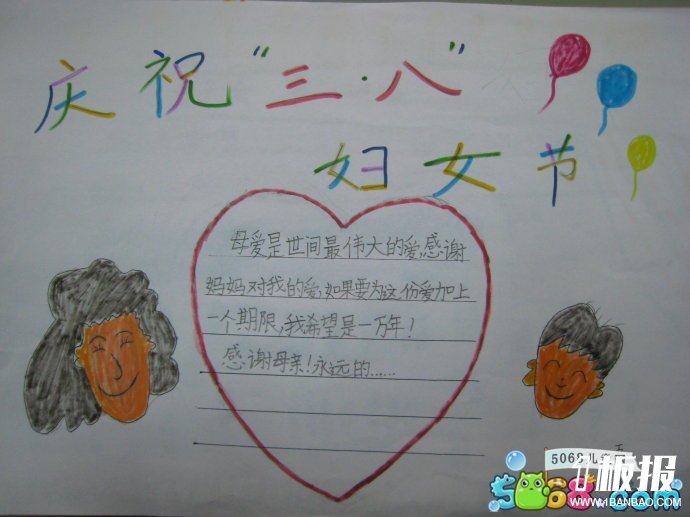 庆祝“三·八”
妇女节
母爱是世间最伟大的爱,感谢
妈妈对我的爱,如果要为这份爱加上
一个期限,我希望是一万年!
感谢母亲!永远的……
5068儿童
板报
5068.com
WWW.1BANBAO.COM